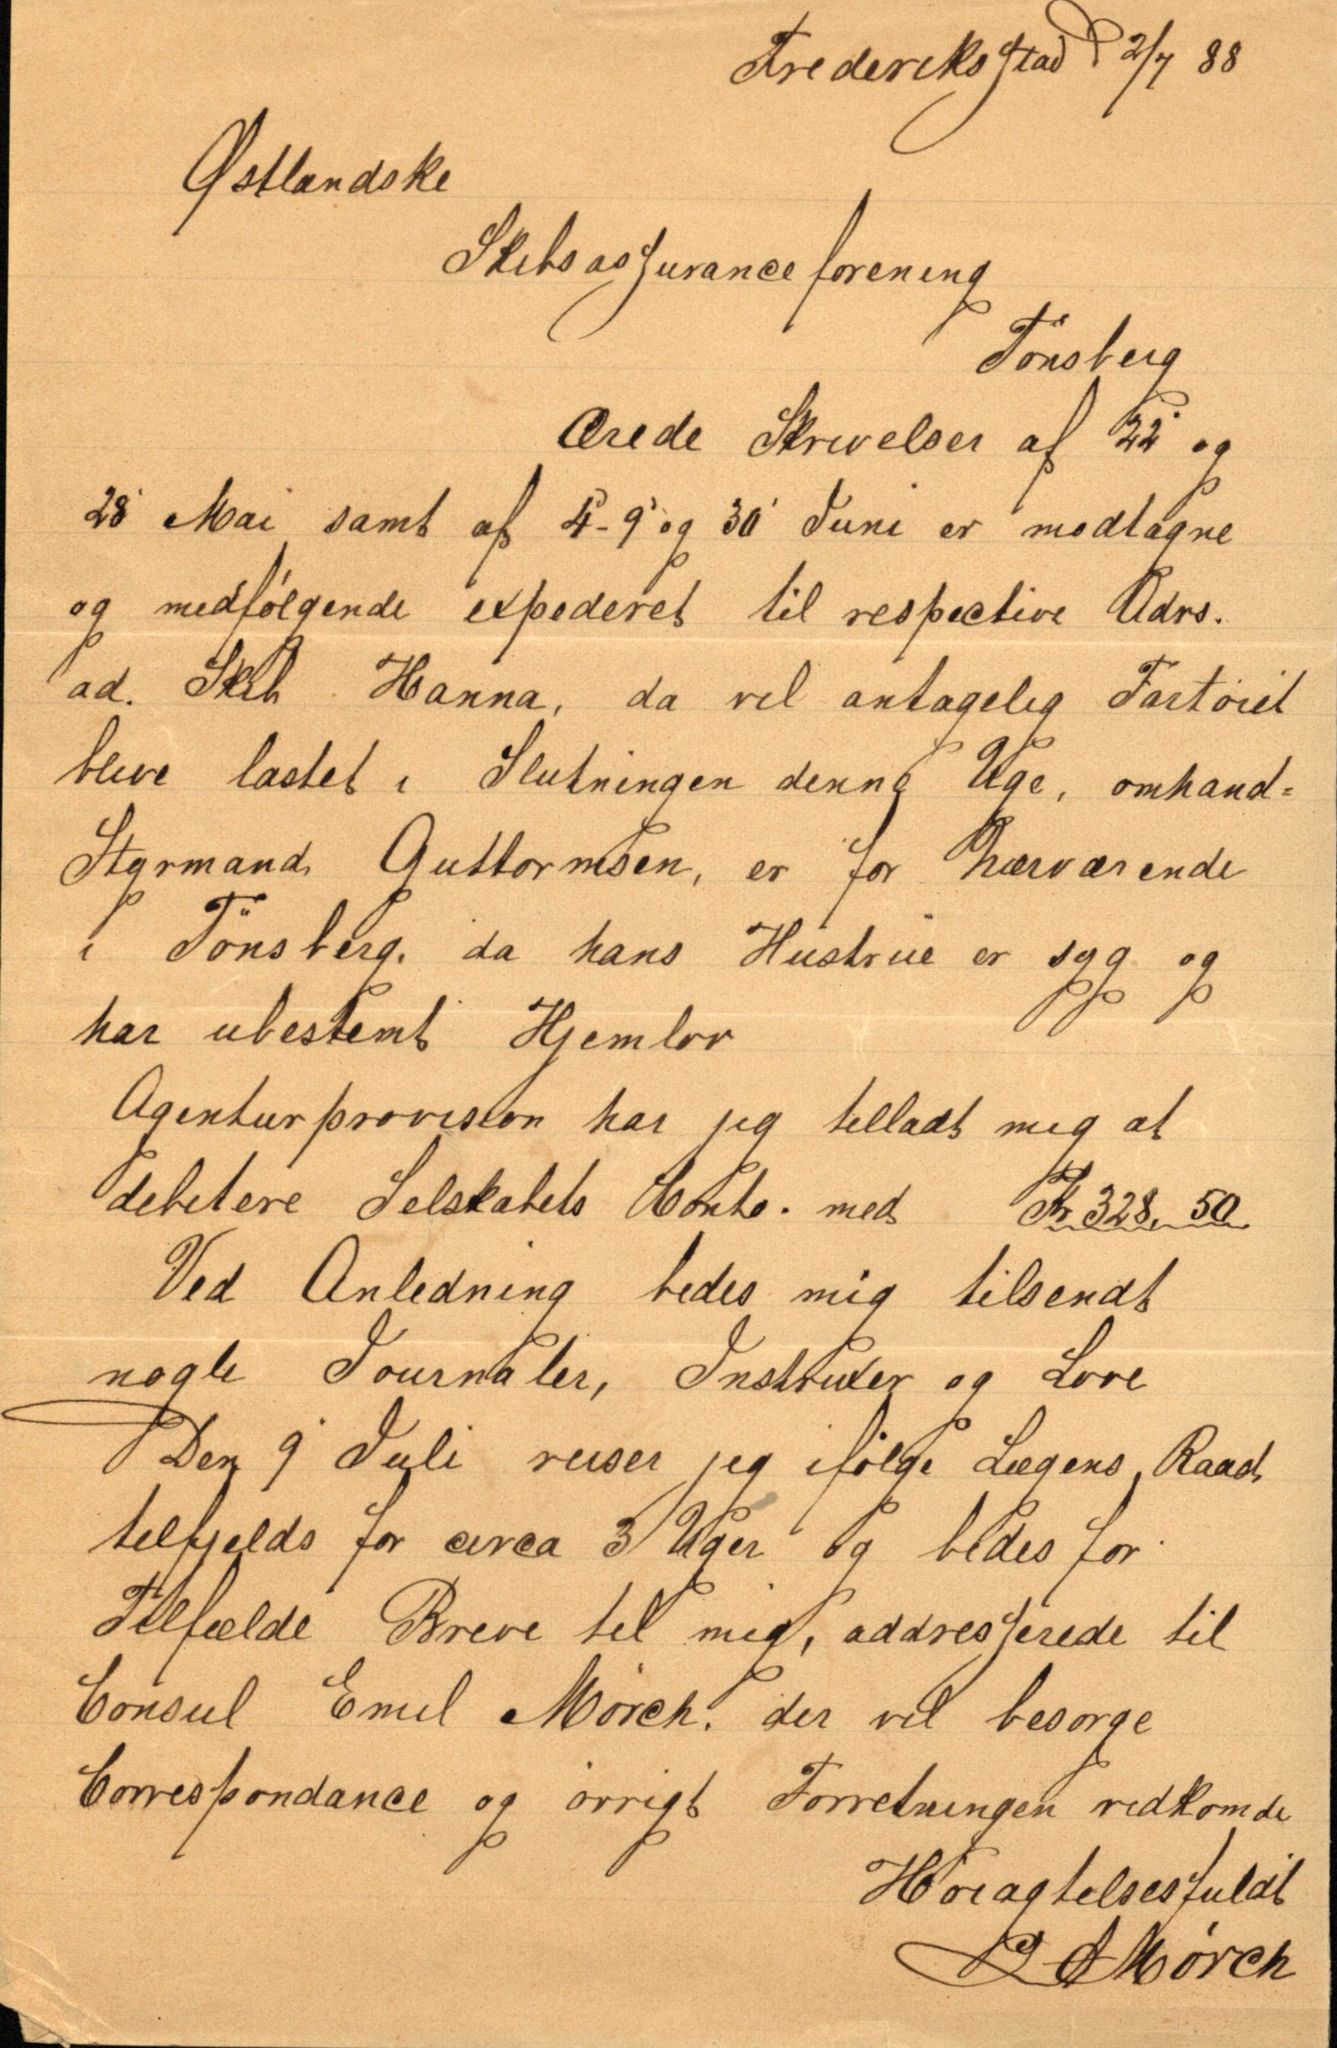 Frederiksstad 2/7 88
Østlandske
Skibsassuranceforening
Tönsberg
Ærede Skrivelser af 22' og
28' Mai samt af 4-9' og 30' Juni er modtagne
og medfølgende expederet til respective Adrs.
ad. Skib Hanna, da vil antagelig Fartöiet
blive lastet i Slutningen denne Uge, omhand=
Styrmand Guttormsen, er for nærværende
i Tönsberg. da hans Hustrue er syg og
har ubestemt Hjemlov
Agenturprovision har jeg tilladt mig at
debitere Selskabets Conto. med Kr 328. 50
Ved Anledning bedes mig tilsendt
nogle Journaler, Instruxer og Love
Den 9' Juli reiser jeg ifølge Lægens Raad
tilfjelds for circa 3 Uger og bedes for
Tilfælde Breve til mig, addresserede til
Consul Emil Mörch. der vil besorge
Correspondance og övrigt Forretningen vedkomde
Höiagtelsesfuldt
Mörch